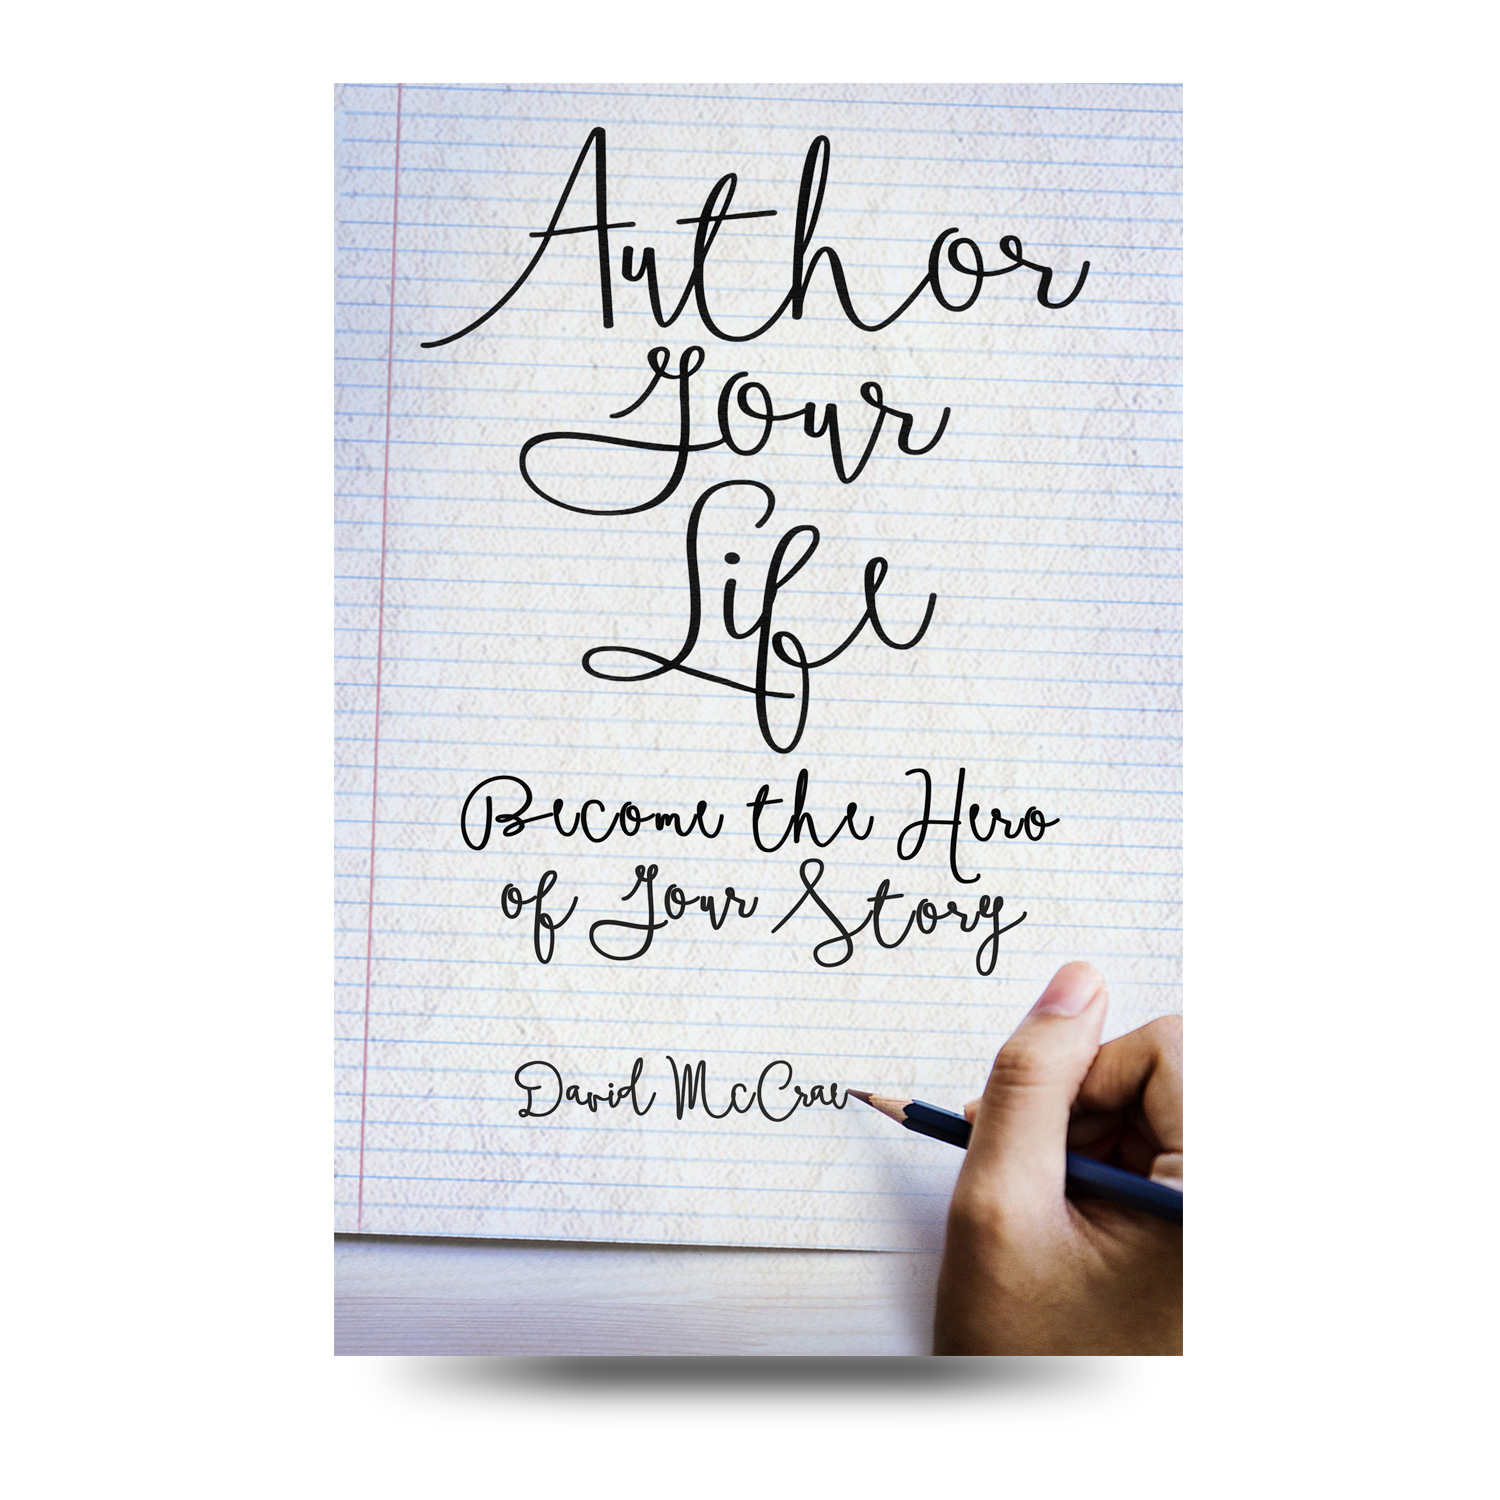 Author
Your
Life
Become the Hero
of Your Story
David McCrae